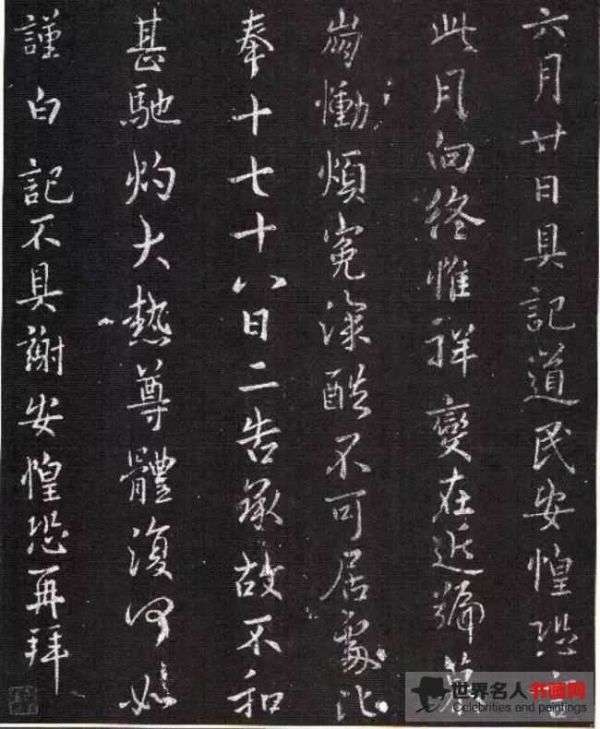 六月廿日具記道民安惶恐言
此月向終惟祥變在近號慕
崩慟煩冤深酷不可居處比
奉十七十八日二告承故不和
甚馳灼大熱尊體復何如
謹白記不具謝安惶恐再拜
世界名人书画网
Celebrities and paintings